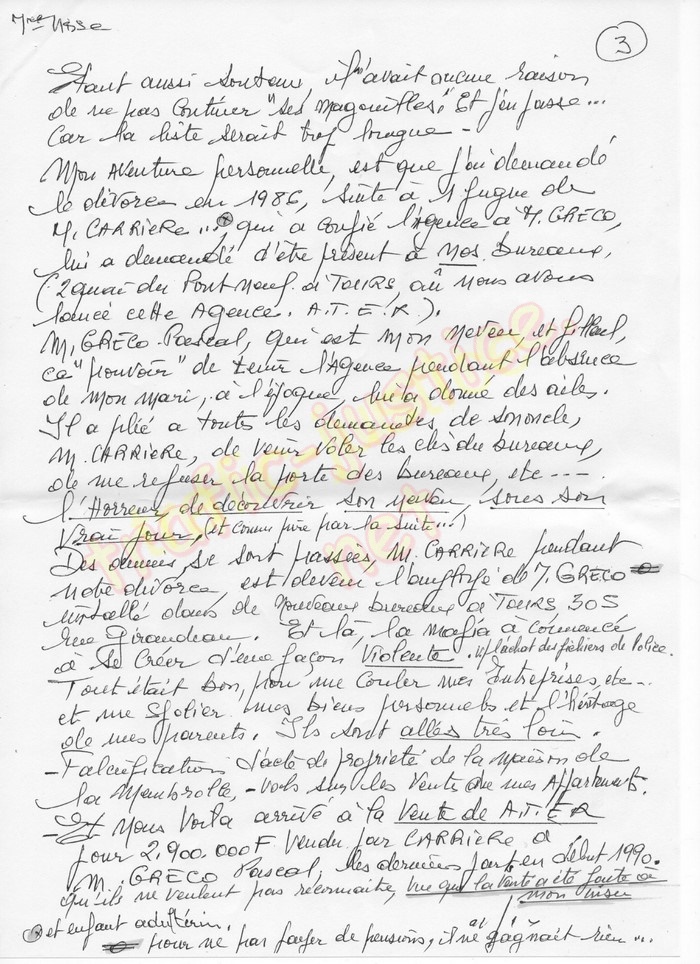 Mme Nasse
3
Etant aussi soutenu, il n'avait aucune raison
de ne pas continuer "ses magouilles." Et j'en passe...
Car la liste serait trop longue -
Mon Aventure personnelle, est que j'ai demandé
le divorce en 1986, suite à 1 fugue de
M. CARRIERE ... ⊗ qui a confié l'Agence à M. GRECO,
lui a demandé d'être présent à Nos bureaux,
(2 quai du Pont Neuf à TOURS, où nous avons
lancé cette Agence. A.T.E.R.).
M. GRECO Pascal, qui est mon neveu, et filleul,
ce "pouvoir" de tenir l'Agence pendant l'absence
de mon mari, à l'époque, lui a donné des ailes.
Il a plié a toutes les demandes de son oncle,
M. CARRIERE, de venir voler les clés du bureaux,
de me refuser la porte des bureaux, etc ----
l'Horreur de découvrir son neveu, sous son
Vrai jour, (et comme pire par la suite...)
Des années, se sont passées, M. CARRIERE pendant
notre divorce, est devenu l'employé de M. GRECO
installé dans de nouveaux bureaux à TOURS 305
rue Giraudeau. Et là, la mafia à commencé
à se créer d'une façon Violente. l'achat des fichiers de Police.
Tout était bon, pour me couler mes Entreprises, etc -..
et me spolier mes biens personnels et l'héritage
de mes parents. Ils sont allés très loin.
- Falsification d'acte de propriété de la maison de
la Membrolle, - vols sur les Vente de mes Appartements.
- Et Nous Voila arrivé à la Vente de A.T.E.R
pour 2.900.000F Vendu par CARRIERE à
M. GRECO Pascal, les dernières part en début 1990.
Qu'ils ne veulent pas reconnaitre, vue que la vente a été faite à
mon insu
⊗ et enfant adultérin.
pour ne pas payer de pensions, il ne gagnait rien ...
trafic-justice.
net